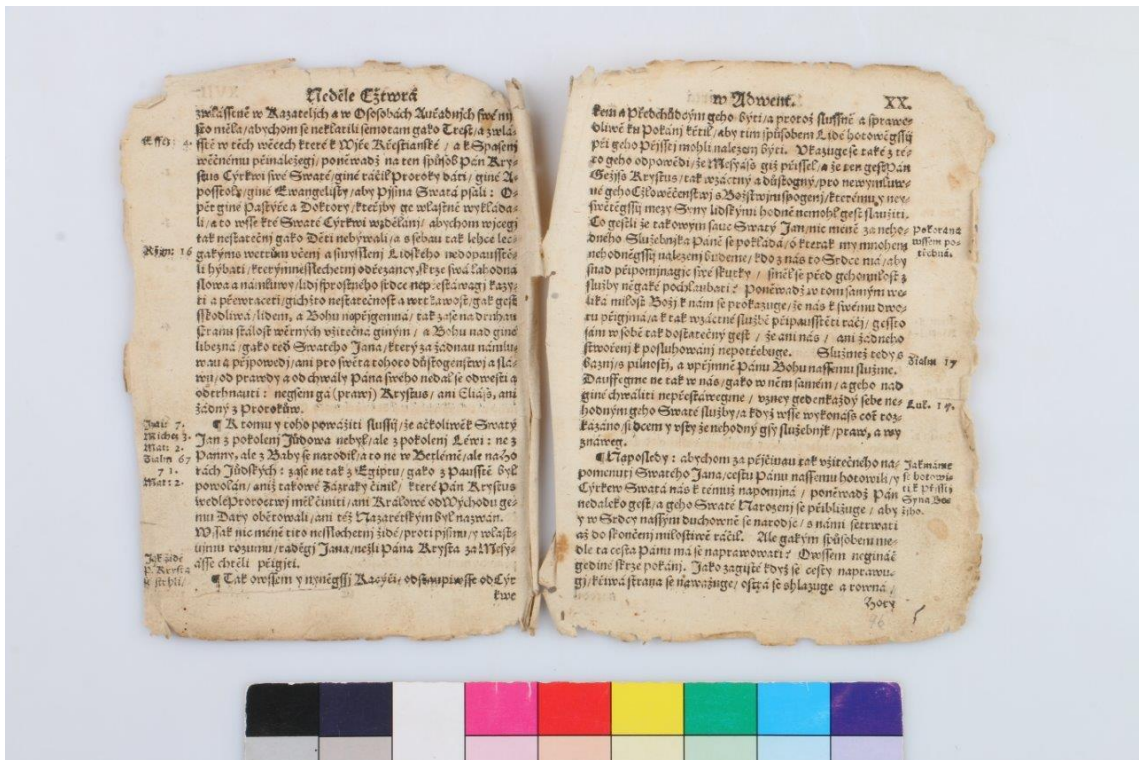 Neděle Cžtwrá
zwlásstně w Kazatelých a w Osobách Auřadných swé mj
sto měla/abychom se neklátili semotam gako Trest/a zwlá-
sstě w těch wěcech které k Wjře Křestianské / a k Spasenj
wěčnému přináležegj/poněwadž na ten spůsob Pán Kry-
stus Cýrkwi swé Swaté/giné ráčil Proroky dáti/giné A-
posstoly/giné Ewangelisty/aby Pjsma Swatá psali: O-
pět giné Pastýře a Doktory/kteřjby ge wlastně wykláda-
li/a to wsse k té Swaté Cýrkwi wzdělánj/abychom wjcegj
tak nestatečnj gako Děti nebýwali/a s sebau tak lehce lec-
gakýms wětrům včenj a smysslenj Lidského nedopausstě-
li hýbati/kterýmž nesslechetnj odřezancy/skrze swá lahodná
slowa a námluwy/lidj sprostného srdce nepřestáwagj kazy-
ti a přewraceti/gichžto nestatečnost a wrtkawost/gak gest
sskodliwá/lidem, a Bohu nepřjgemná/tak zase na druhau
stranu stálost wěrných vžitečná giným / a Bohu nad giné
libezná/gako teď Swatého Jana/který za žádnau námlu-
wau a přjpowědj/ani pro swěta tohoto důstogenstwj a slá-
wu/od prawdy a od chwály Pána swého nedal se odwesti a
odtrhnauti: negsem gá (prawj) Krystus/ ani Eliáss, ani
žádný z Proroků.
¶ K tomu y toho poważiti slussý/že ačkoliwěk Swatý
Jan z pokolenj Júdowa nebyl/ale z pokolenj Léwi: ne z
Panny, ale z Baby se narodil/a to ne w Betlémě/ale na Ho
rách Júdských: zase ne tak z Egiptu/gako z Pausstě byl
powolán/aniž takowé Zázraky činil/ které Pán Krystus
wedlé Proroctwj měl činiti/ani Králowé od Wýchodu ge-
mu Dary obětowali/ani též Nazaretským byl nazwán.
Wssak nic méně tito nesslechetnj židé/proti pjsmu y wlast-
njmu rozumu/raděgj Jana/nežli Pána Krysta za Mesy-
ásse chtěli přigjti.
¶ Tak owssem y nyněgssj Kacýři odstaupiwsse od Cýr
kwe
Effes: 4.
Řzjm: 16
Jzai: 7.
Miche: 5.
Mat: 2.
Žialm 67
71.
Mat: 2.
Jak židé
P. Krysta
se strhli/
w Adwent. XX.
kem a Předchůdcým geho býti/a protož slussně a sprawe-
dliwě ku Pokánj křtil/aby tjm spůsobem Lidé hotowěgssj
při geho Přissstj mohli nalezeni býti. Vkazuge se také z té-
to geho odpowědi/že Mesyáss giž přissel/a že ten gest Pán
Gežjss Krystus/tak wzáctný a důstogný/pro newymluw-
né geho Cžlowěčenstwj s Božstwjm spogenj/kterému y ney-
swětěgssj mezy Syny lidskými hodně nemohl gest slaužiti.
Co gestli že takowým sauc Swatý Jan/nic méně za neho-
dného Služebnjka Páně se pokládá/ó kterak my mnohem
nehodněgssj nalezeni budeme/kdo z nás to Srdce má/aby
snad připomjnagjc swé skutky / směl se před gehomilost z
služby něgaké pochlaubati? Poněwadž w tom samým we-
liká milost Božj k nám se prokazuge/že nás k swému dwo-
ru přigjmá/a k tak wzáctné službě připausstěti ráčj/ gessto
sám w sobě tak dostatečný gest / že ani nás / ani žádného
stwořenj k posluhowánj nepotřebuge. Služmež tedy s
báznj/s pilnostj, a vpřjmně Pánu Bohu nassemu služme.
Dauffegme ne tak w nás/gako w něm samém/a geho nad
giné chwáliti nepřestáwegme / vzney gedenkaždý sebe ne-
hodným geho Swaté služby/a když wsse wykonáss cot roz-
kázáno/srdcem y vsty že nehodný gsy služebnjk/praw, a wy
znáweg.
¶ Naposledy: abychom za přjčinau tak vžitečného na-
pomenutj Swatého Jana/cestu Pánu nassemu hotowili/y
Cýrkew Swatá nás k témuž napomjná / poněwadž Pán
nedaleko gest/a geho Swaté Narozenj se přibližuge / aby
y w Srdcy nassým duchowně se narodje / s námi setrwati
až do skončenj milostiwě ráčil. Ale gakým spůsobem me-
dle ta cesta Pánu má se naprawowati? Owssem negináč
gediné skrze pokánj. Jako zagisté když se cesty naprawu-
gj/křiwá strana se nawažuge/ ostrá se shlazuge a rowná /
Hory
Pokora ná
wssem po-
třebná.
Žialm 17
Luk. 17.
Jak máme
se hotowi-
ti k Přisstj
Syna Bo-
žjho.
76